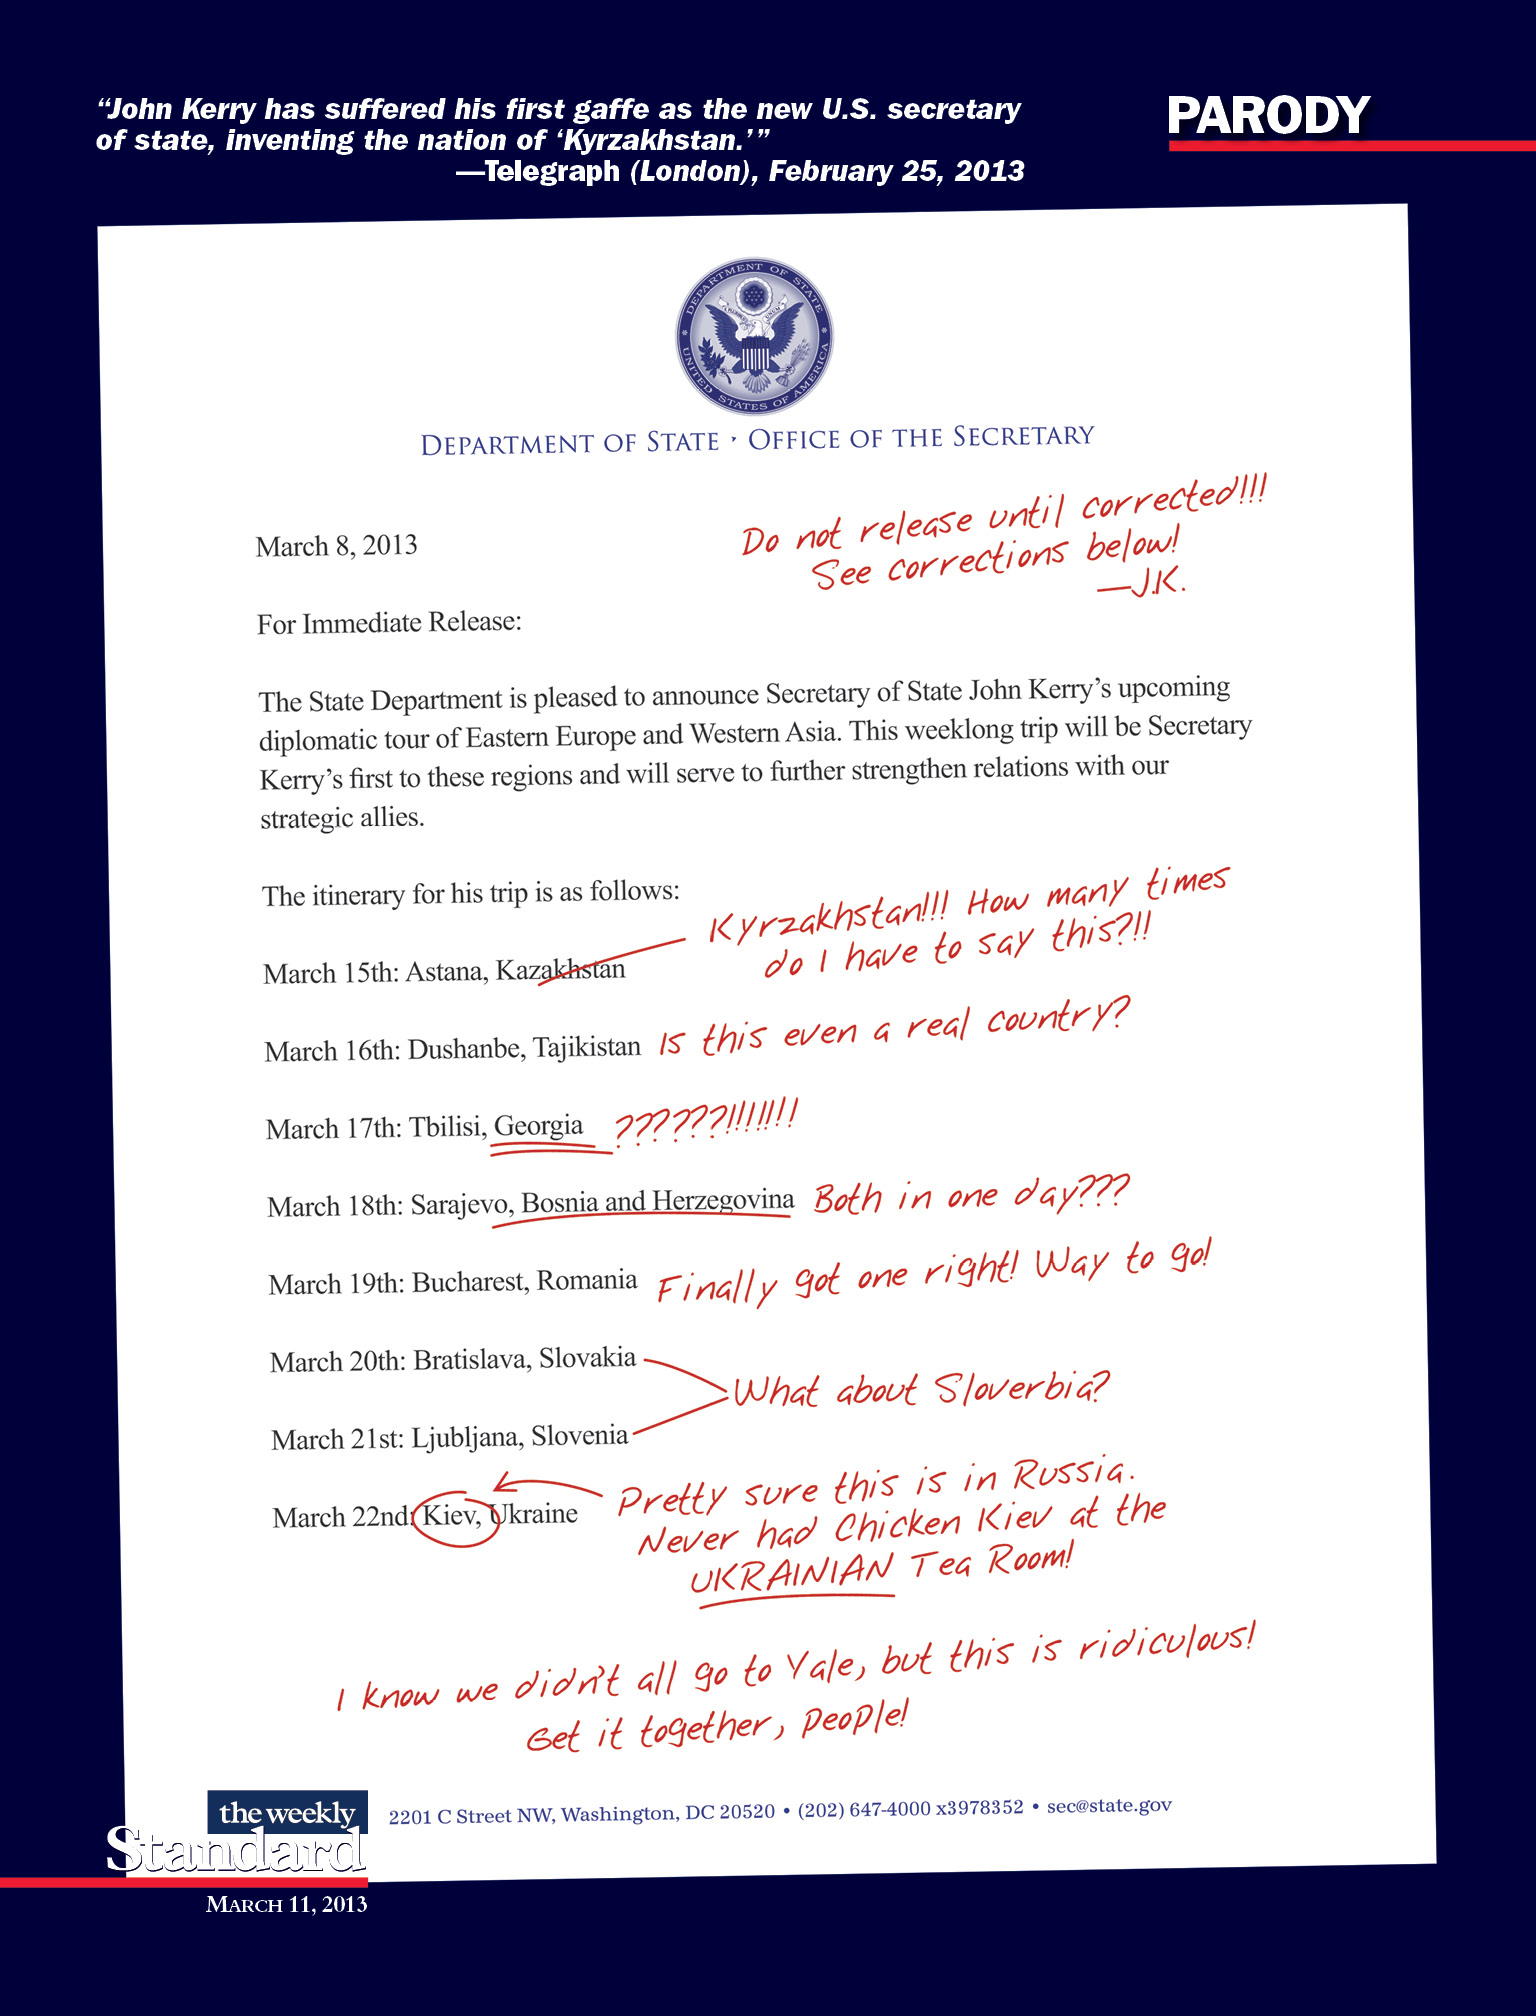 “John Kerry has suffered his first gaffe as the new U.S. secretary
of state, inventing the nation of ‘Kyrzakhstan.’”
—Telegraph (London), February 25, 2013
PARODY
DEPARTMENT OF STATE
UNITED STATES OF AMERICA
DEPARTMENT OF STATE · OFFICE OF THE SECRETARY
Do not release until corrected!!!
See corrections below!
—J.K.
March 8, 2013
For Immediate Release:
The State Department is pleased to announce Secretary of State John Kerry’s upcoming
diplomatic tour of Eastern Europe and Western Asia. This weeklong trip will be Secretary
Kerry’s first to these regions and will serve to further strengthen relations with our
strategic allies.
The itinerary for his trip is as follows:
Kyrzakhstan!!! How many times
do I have to say this?!!
March 15th: Astana, Kazakhstan
March 16th: Dushanbe, Tajikistan Is this even a real country?
March 17th: Tbilisi, Georgia ??????!!!!!!!
March 18th: Sarajevo, Bosnia and Herzegovina Both in one day???
March 19th: Bucharest, Romania Finally got one right! Way to go!
March 20th: Bratislava, Slovakia
What about Sloverbia?
March 21st: Ljubljana, Slovenia
March 22nd: Kiev, Ukraine Pretty sure this is in Russia.
Never had Chicken Kiev at the
UKRAINIAN Tea Room!
I know we didn’t all go to Yale, but this is ridiculous!
Get it together, people!
the weekly
Standard
2201 C Street NW, Washington, DC 20520 • (202) 647-4000 x3978352 • sec@state.gov
MARCH 11, 2013